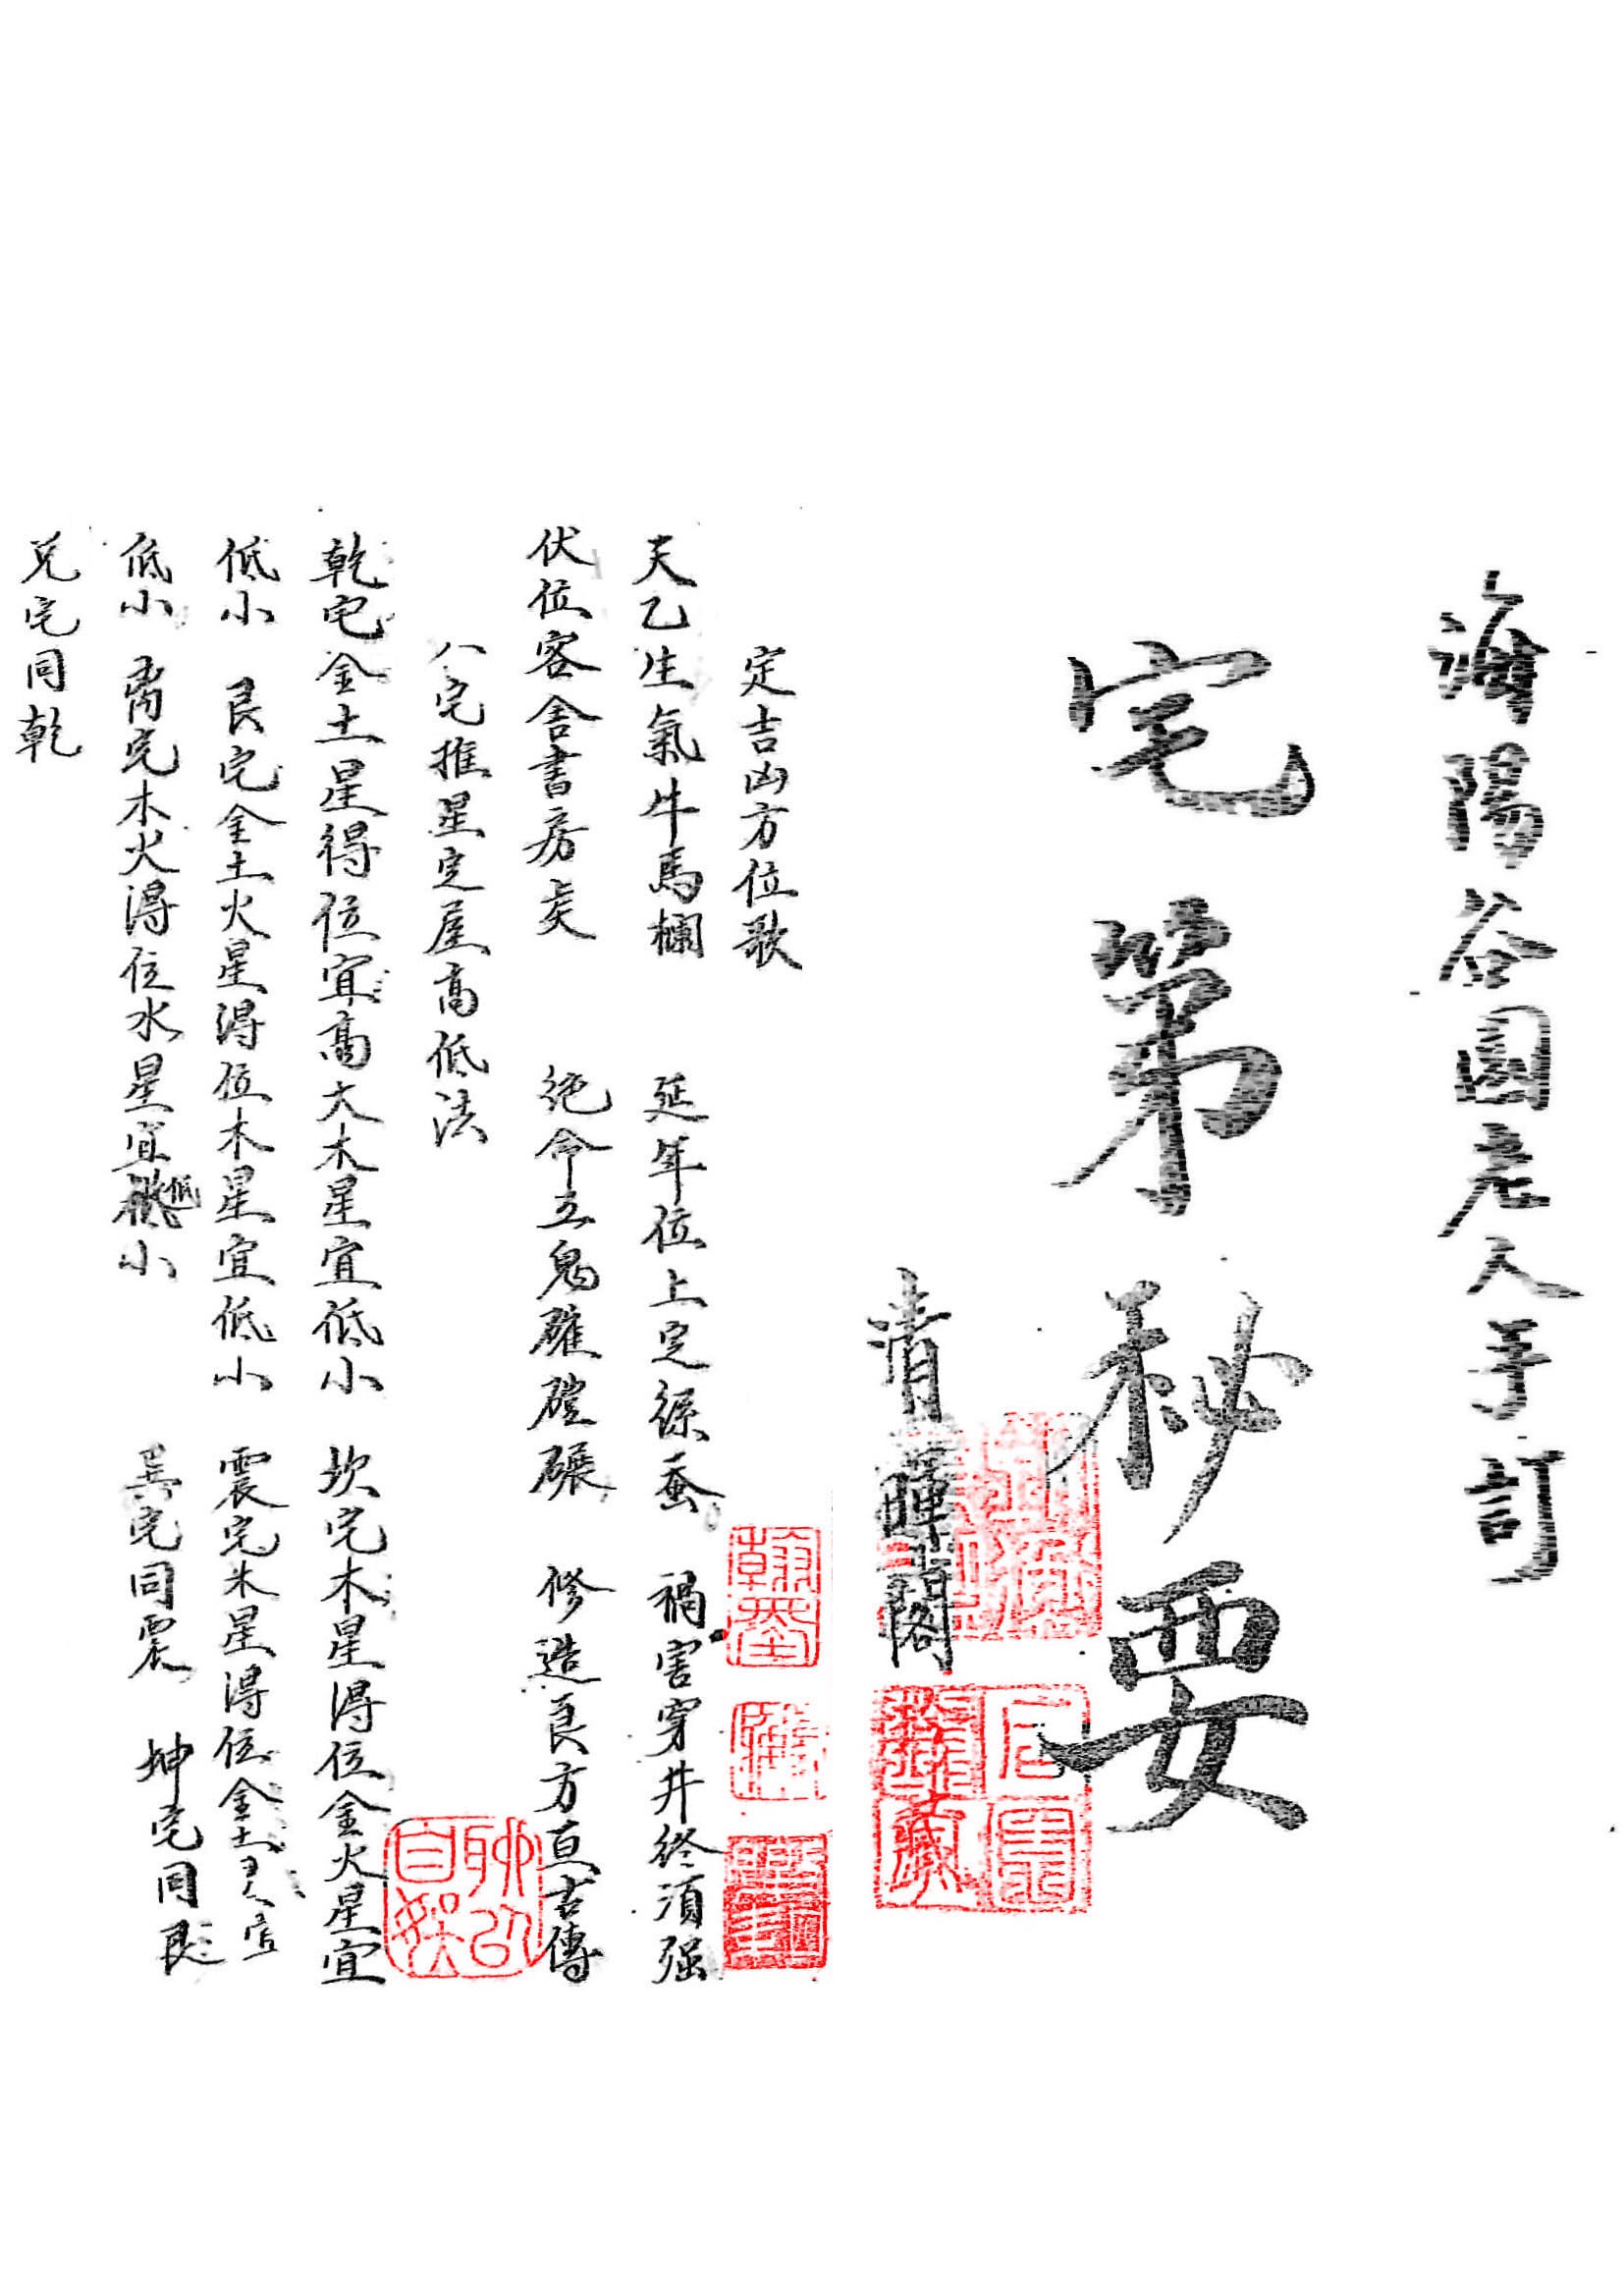 海陽谷園老人手訂
宅第秘要
清暉閣
定吉凶方位歌
天乙生氣牛馬欄 延年位上定綵蚕 禍害穿井終須强
伏位客舍書房矣 絶命五鬼碓磑碾 修造良方亘古傳
八宅推星定屋高低法
乾宅金土星得位宜高大木星宜低小 坎宅木星得位金火星宜
低小 艮宅金土火星得位木星宜低小 震宅木星得位金土星宜
低小 离宅木火得位水星宜低小 巽宅同震 坤宅同艮
兑宅同乾
翰墨
聊以自娱